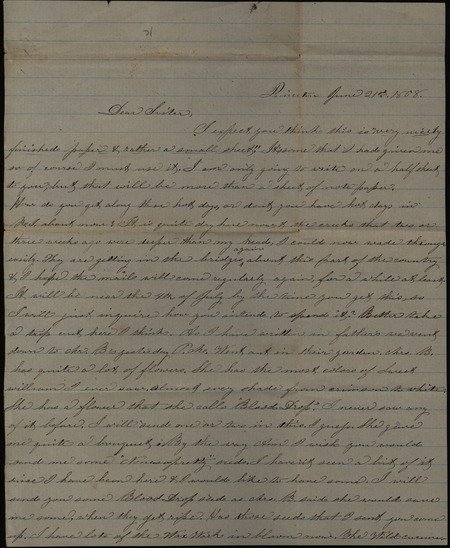 Princeton June 21st, 1858.
Dear Sister,
I expect you think this is "very nicely
finished paper & rather a small sheet." It's some that I had given me
so of course I must use it. I am only going to write on a half sheet
to you, but that will be more than a sheet of note paper.
How do you get along these hot days, or don't you have hot days in
about now? It is quite dry here now & the creeks that two or
three weeks ago were deeper than my head, I could now wade through
easily. They are getting in the bridges again about this part of the country
& I hope the mails will come regularly again for a while at least.
It will be near the 4th of July by the time you get this, so
I will just inquire how you intend to spend it? Better take
a trip out here I think. As I have written in father's we went
down to Mrs. B's yesterday P.M. Went out in their garden. Mrs. B.
has quite a lot of flowers. She has the most colors of Sweet
william I ever saw. Almost every shade from crimson to white.
She has a flower that she calls "Blood Drop." I never saw any
of it before. I will send one or two in this I guess. She gave
me quite a bouquet. By the way I wish you would
send me some seed. I haven't seen a bit of it
since I have been here & I would like to have some. I will
send you some Blood Drop seed as Mrs B said she would save
me some, when they get ripe. Has those seeds that I sent you come
up. I have lots of the in bloom now. The Wild